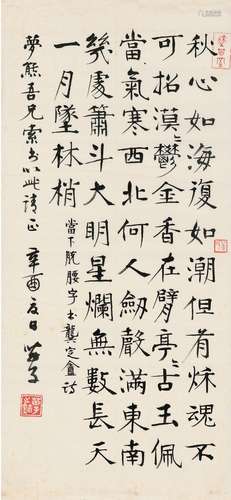 秋心如海復如潮但有秌魂不
可招漠〻鬱金香在臂亭〻古玉佩
當氣寒西北何人劍聲滿東南
幾處簫斗大明星爛無數長天
一月墜林梢 當下脫腰字 書龔定盦詩
夢熊吾兄索書以此請正 辛酉夏日